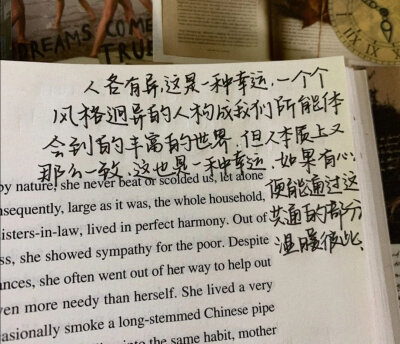 DREAMS COME
TRUE
人各有异,这是一种幸运,一个个
风格迥异的人构成我们所能体
会到的丰富的世界,但人本质上又
那么一致,这也是一种幸运,如果有心,
便能通过这
共通的部分
温暖彼此.
by nature, she never beat or scolded us, let alone
nsequently, large as it was, the whole household,
isters-in-law, lived in perfect harmony. Out of
ss, she showed sympathy for the poor. Despite
ances, she often went out of her way to help out
ven more needy than herself. She lived a very
casionally smoke a long-stemmed Chinese pipe
into the same habit, mother